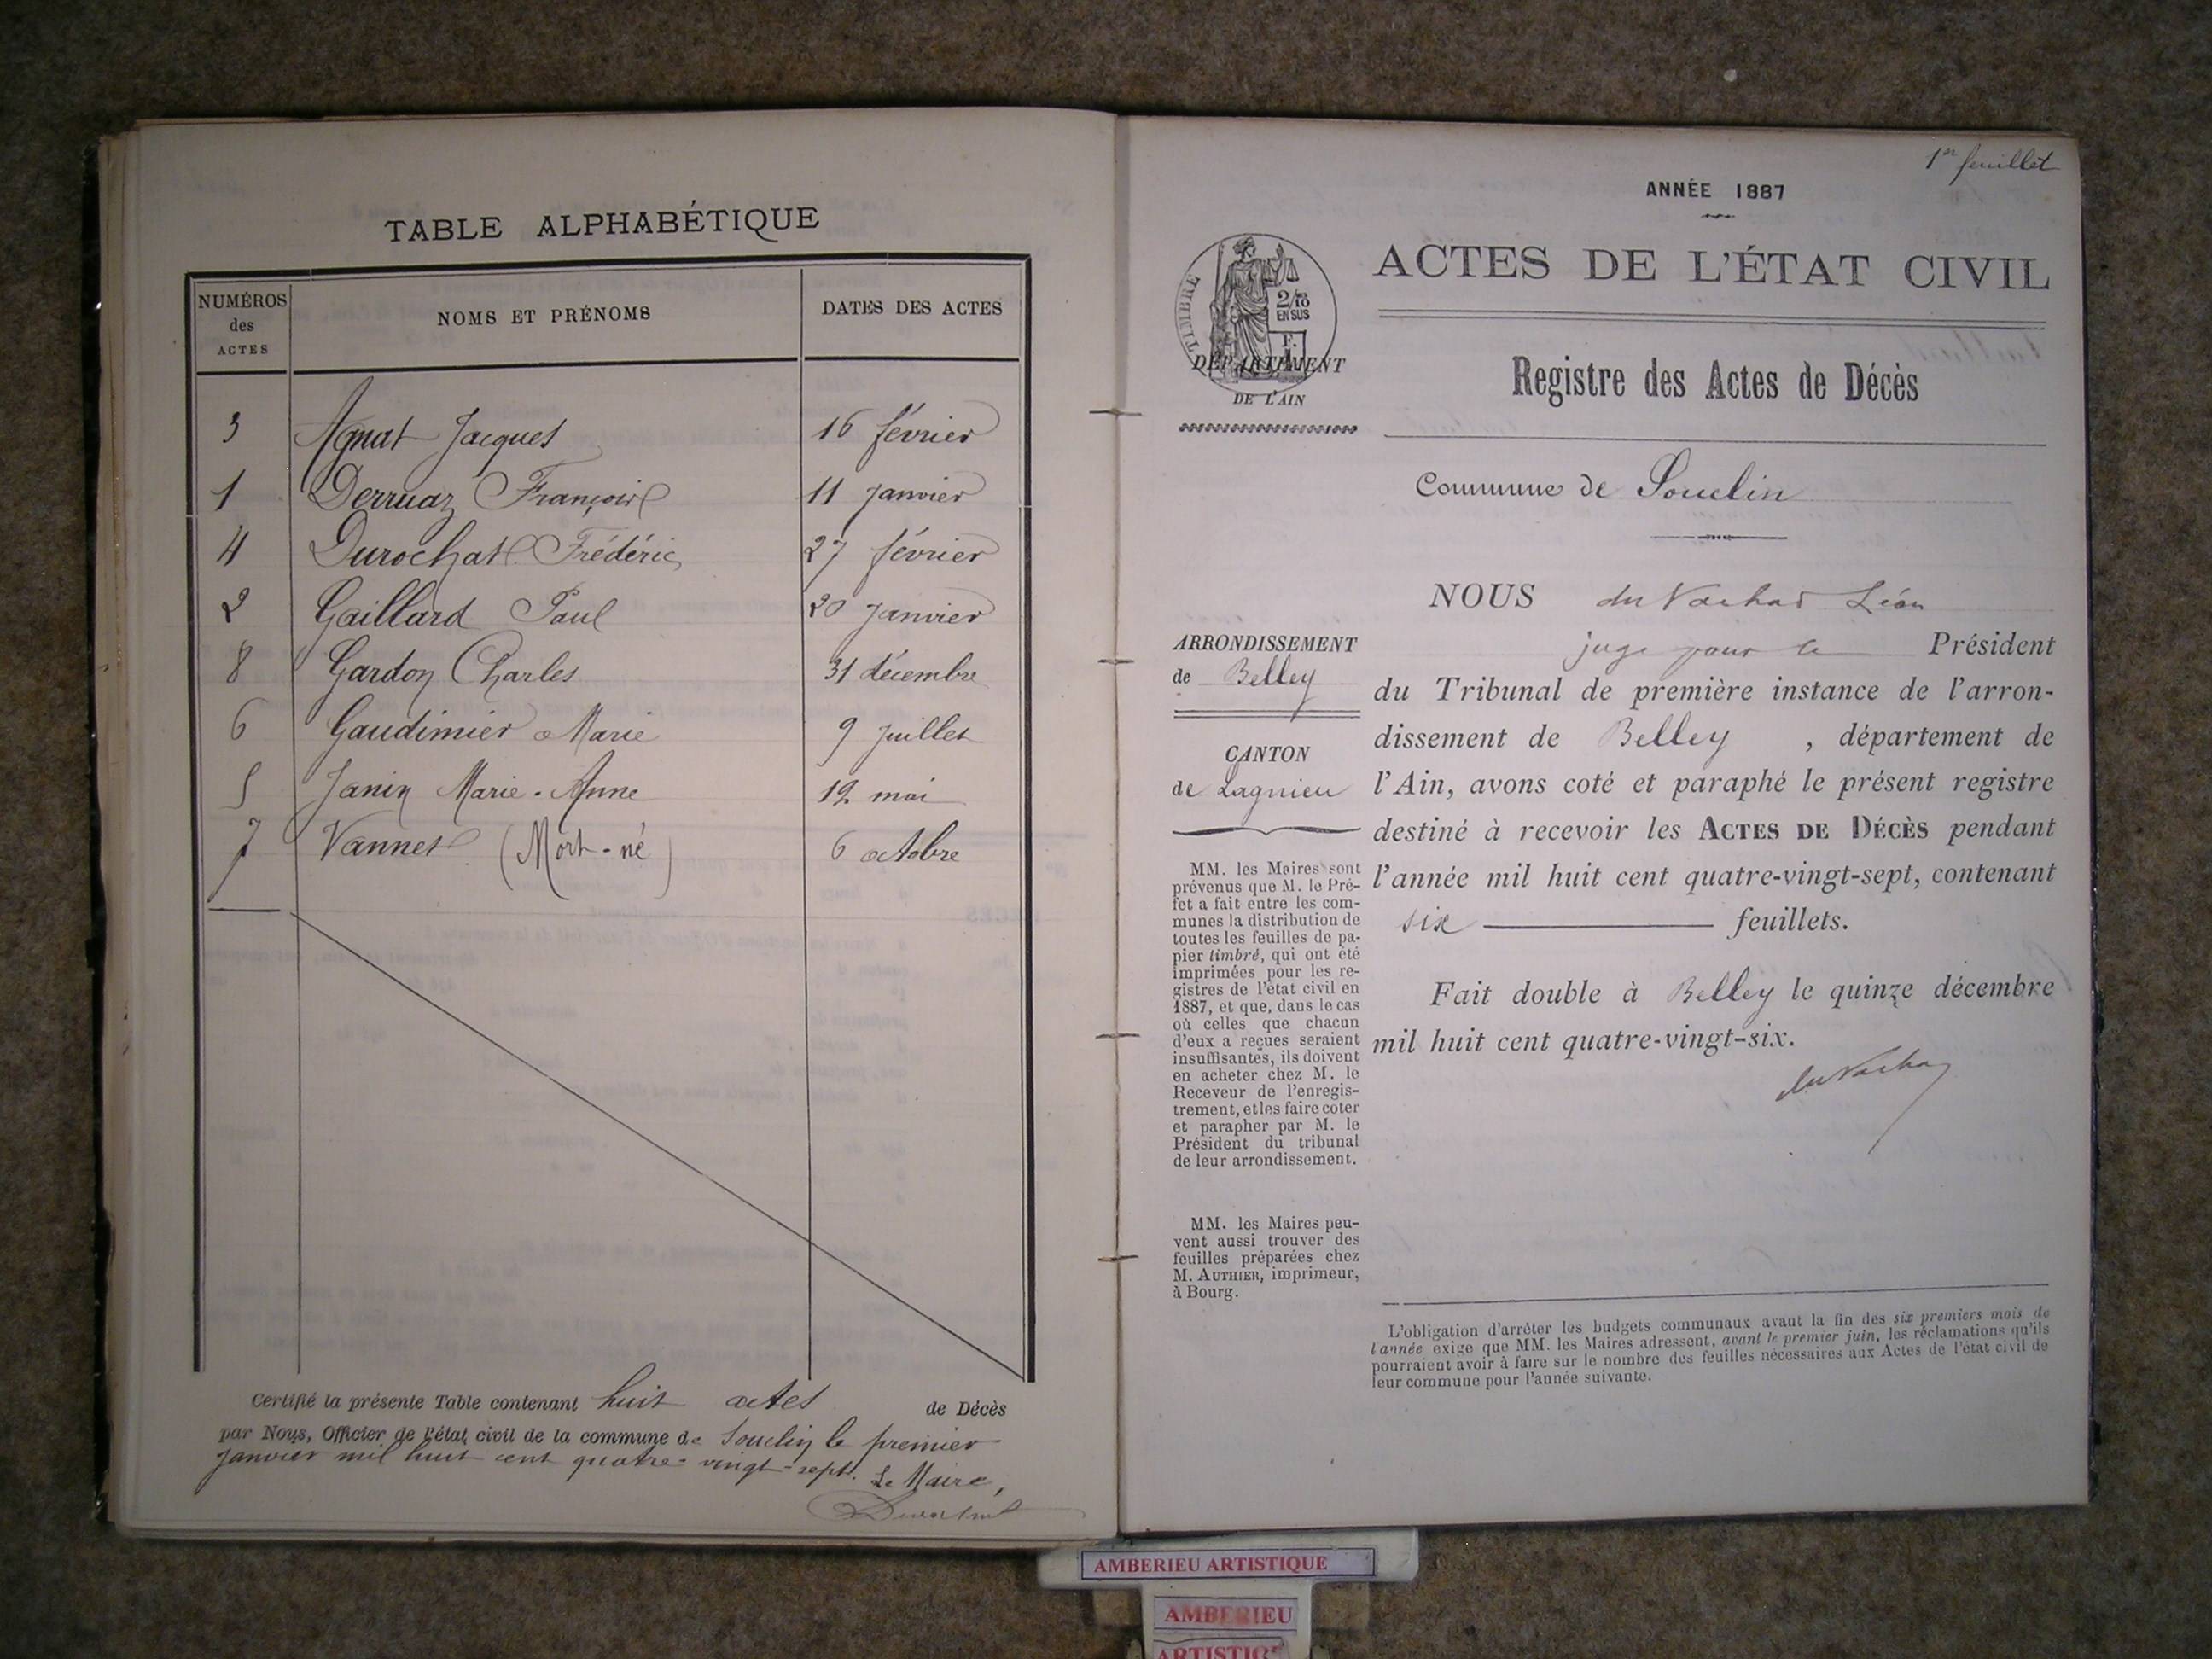 TABLE ALPHABÉTIQUE
NUMÉROS des ACTES NOMS ET PRÉNOMS DATES DES ACTES
3 Agnat Jacques 16 février
1 Derruaz François 11 janvier
4 Durochat Frédéric 27 février
2 Gaillard Paul 20 janvier
8 Gardon Charles 31 décembre
6 Gaudimier Marie 9 juillet
5 Janin Marie-Anne 12 mai
7 Vannet (Mort-né) 6 octobre
Certifié la présente Table contenant huit actes de Décès
par Nous, Officier de l'état civil de la commune de Souclin le premier
janvier mil huit cent quatre-vingt-sept. Le Maire,
1er feuillet
ANNÉE 1887
ACTES DE L'ÉTAT CIVIL
TIMBRE
2/10
EN SUS
F.
DÉPARTEMENT
DE L'AIN
Registre des Actes de Décès
Commune de Souclin
ARRONDISSEMENT
de Belley
CANTON
de Lagnieu
MM. les Maires sont
prévenus que M. le Pré-
fet a fait entre les com-
munes la distribution de
toutes les feuilles de pa-
pier timbré, qui ont été
imprimées pour les re-
gistres de l'état civil en
1887, et que, dans le cas
où celles que chacun
d'eux a reçues seraient
insuffisantes, ils doivent
en acheter chez M. le
Receveur de l'enregis-
trement, et les faire coter
et parapher par M. le
Président du tribunal
de leur arrondissement.
MM. les Maires peu-
vent aussi trouver des
feuilles préparées chez
M. AUTHIER, imprimeur,
à Bourg.
NOUS du Vachat Léon
juge pour le Président
du Tribunal de première instance de l'arron-
dissement de Belley , département de
l'Ain, avons coté et paraphé le présent registre
destiné à recevoir les ACTES DE DÉCÈS pendant
l'année mil huit cent quatre-vingt-sept, contenant
six feuillets.
Fait double à Belley le quinze décembre
mil huit cent quatre-vingt-six.
du Vachat
L'obligation d'arrêter les budgets communaux avant la fin des six premiers mois de
l'année exige que MM. les Maires adressent, avant le premier juin, les réclamations qu'ils
pourraient avoir à faire sur le nombre des feuilles nécessaires aux Actes de l'état civil de
leur commune pour l'année suivante.
AMBERIEU ARTISTIQUE
AMBERIEU